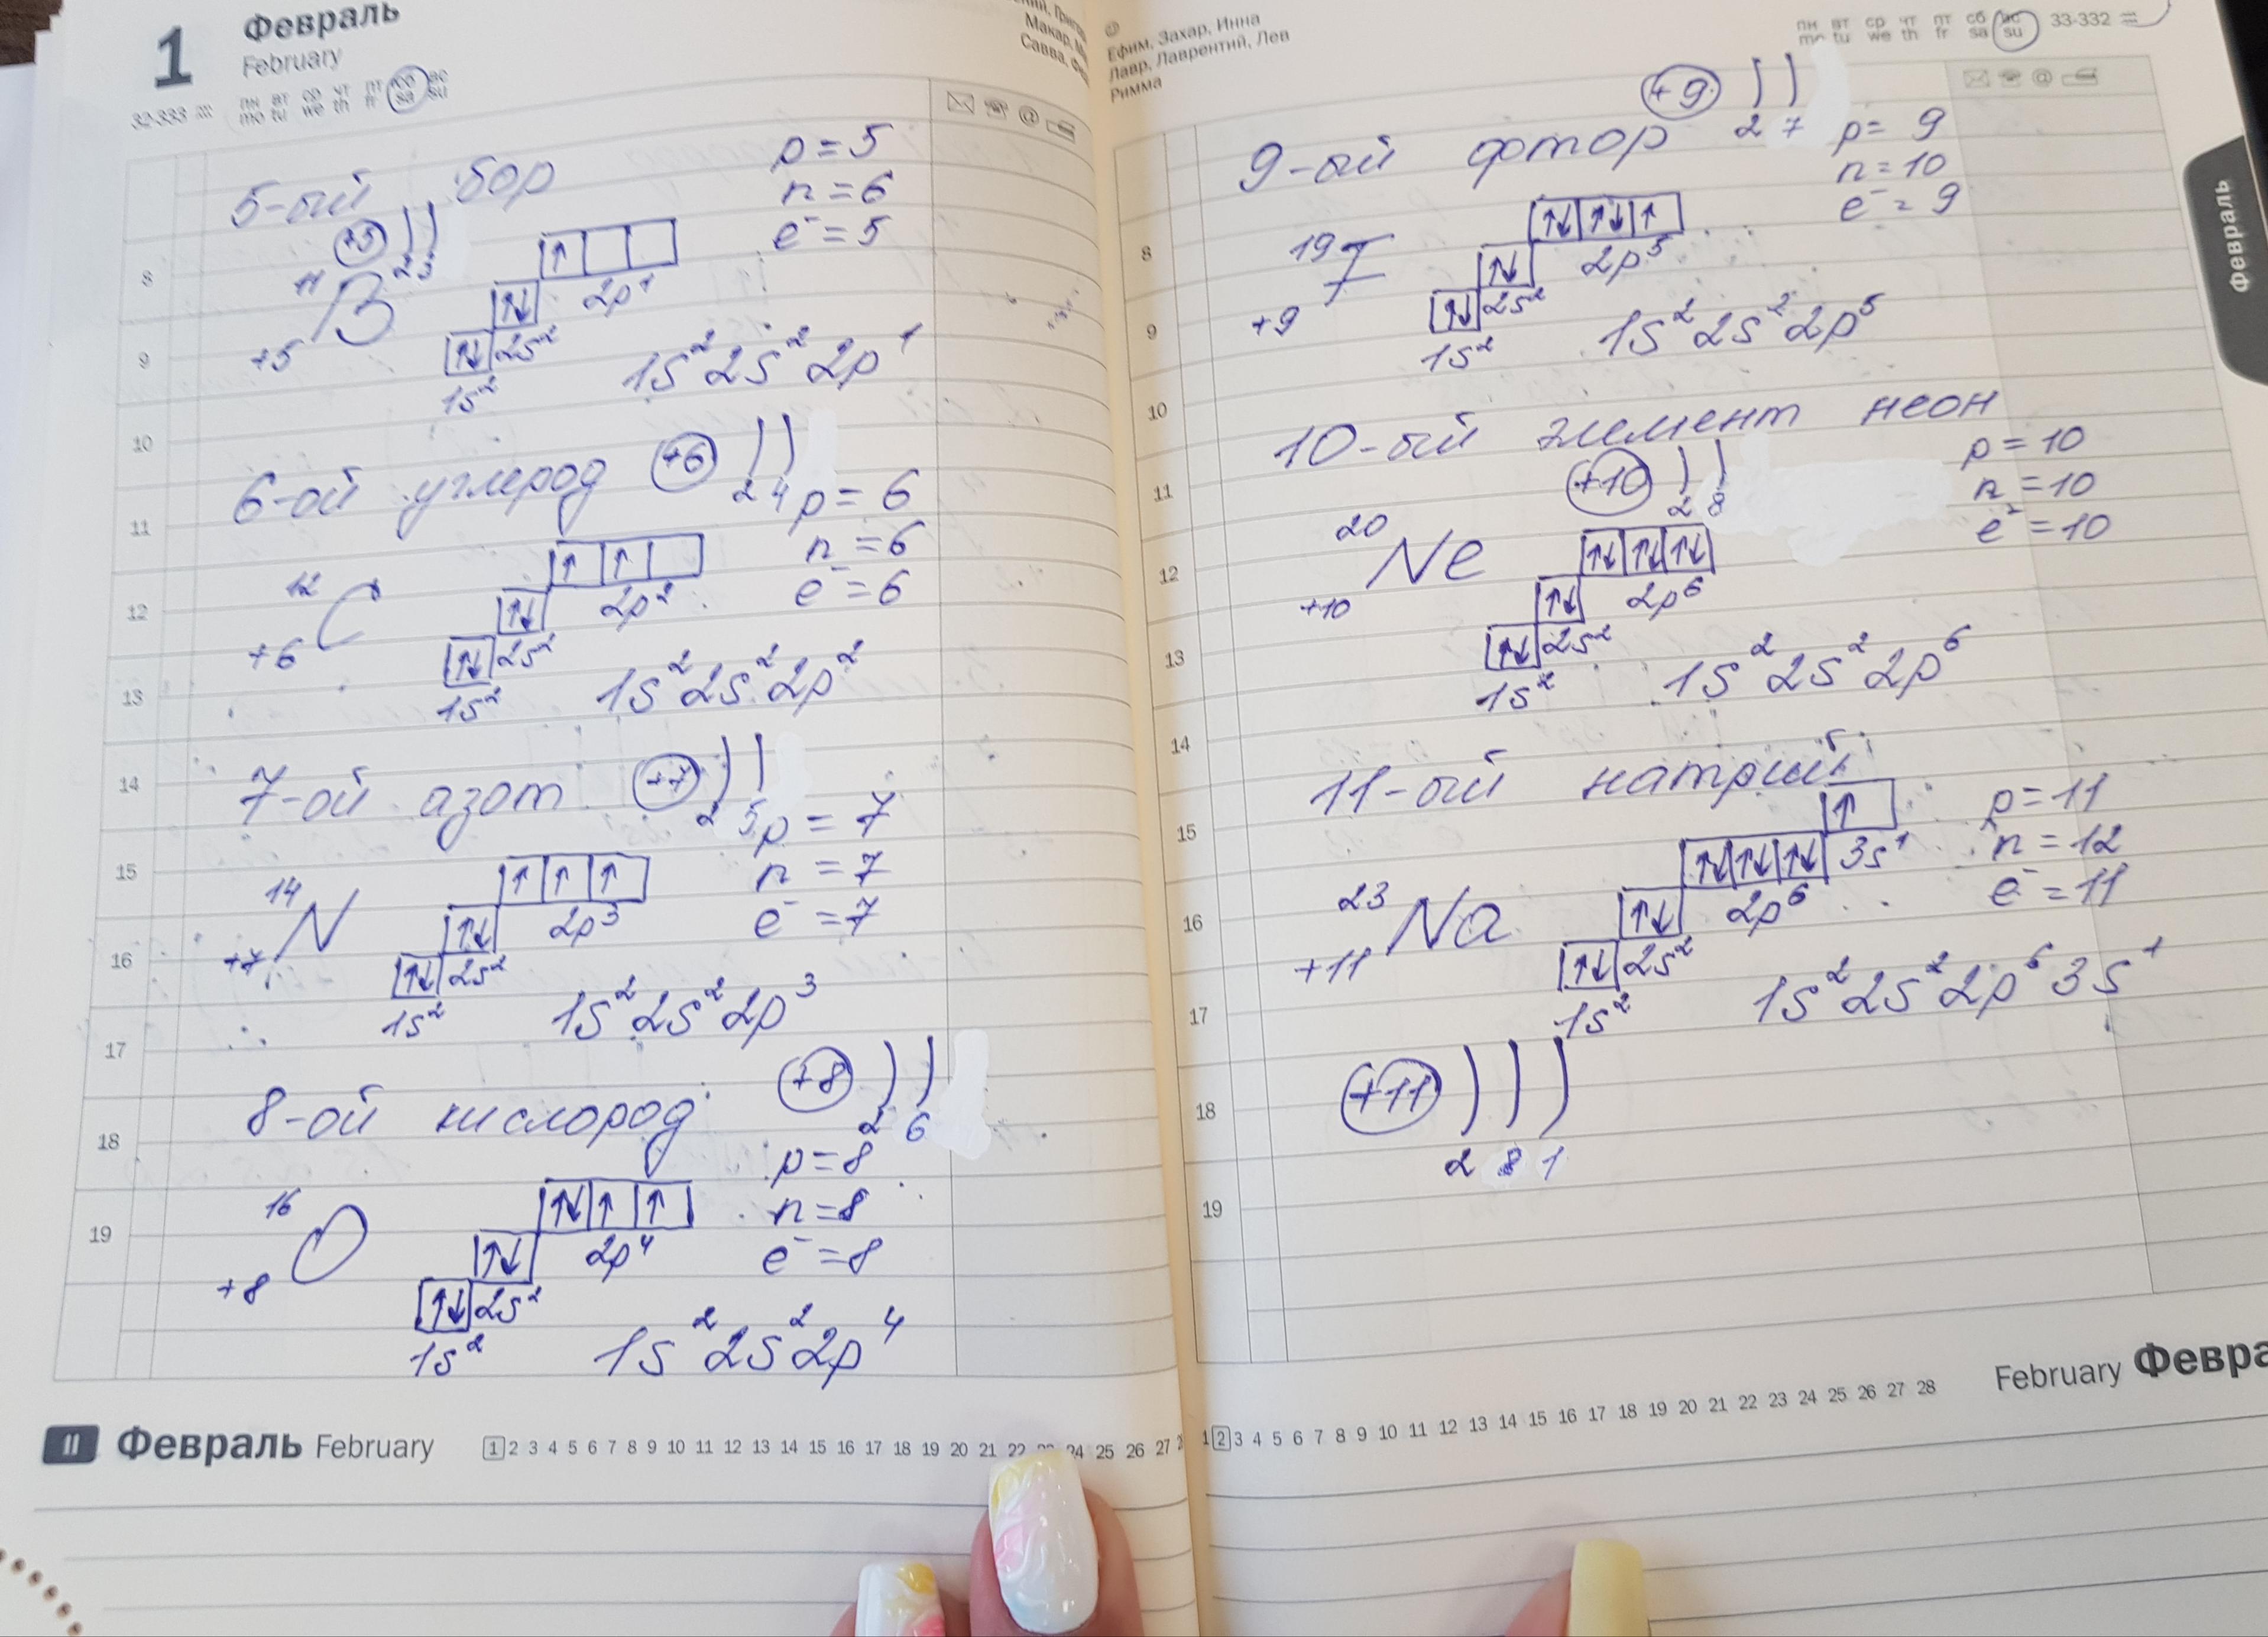 1 Февраль
February
32-333
пн вт ср чт пт сб вс
mo tu we th fr sa su
Макар,
Савва,
5-ый бор
p = 5
n = 6
e⁻ = 5
+5 ) )
2 3
11
B
+5
↑
2p¹
↑↓
2s²
↑↓
1s²
1s² 2s² 2p¹
6-ой углерод +6 ) )
2 4
p = 6
n = 6
e⁻ = 6
12
C
+6
↑ ↑
2p²
↑↓
2s²
↑↓
1s²
1s² 2s² 2p²
7-ой азот +7 ) )
2 5
p = 7
n = 7
e⁻ = 7
14
N
+7
↑ ↑ ↑
2p³
↑↓
2s²
↑↓
1s²
1s² 2s² 2p³
8-ой кислород +8 ) )
2 6
p = 8
n = 8
e⁻ = 8
16
O
+8
↑↓ ↑ ↑
2p⁴
↑↓
2s²
↑↓
1s²
1s² 2s² 2p⁴
8
9
10
11
12
13
14
15
16
17
18
19
II Февраль February
1 2 3 4 5 6 7 8 9 10 11 12 13 14 15 16 17 18 19 20 21 22 23 24 25 26 27
Ефим, Захар, Инна
Лавр, Лаврентий, Лев
Римма
пн вт ср чт пт сб вс
mo tu we th fr sa su
33-332
Февраль
9-ый фтор +9 ) )
2 7
p = 9
n = 10
e⁻ = 9
19
F
+9
↑↓ ↑↓ ↑
2p⁵
↑↓
2s²
↑↓
1s²
1s² 2s² 2p⁵
10-ый элемент неон
+10 ) )
2 8
p = 10
n = 10
e⁻ = 10
20
Ne
+10
↑↓ ↑↓ ↑↓
2p⁶
↑↓
2s²
↑↓
1s²
1s² 2s² 2p⁶
11-ый натрий
p = 11
n = 12
e⁻ = 11
23
Na
+11
↑
3s¹
↑↓ ↑↓ ↑↓
2p⁶
↑↓
2s²
↑↓
1s²
1s² 2s² 2p⁶ 3s¹
+11 ) ) )
2 8 1
8
9
10
11
12
13
14
15
16
17
18
19
1 2 3 4 5 6 7 8 9 10 11 12 13 14 15 16 17 18 19 20 21 22 23 24 25 26 27 28
February Февра